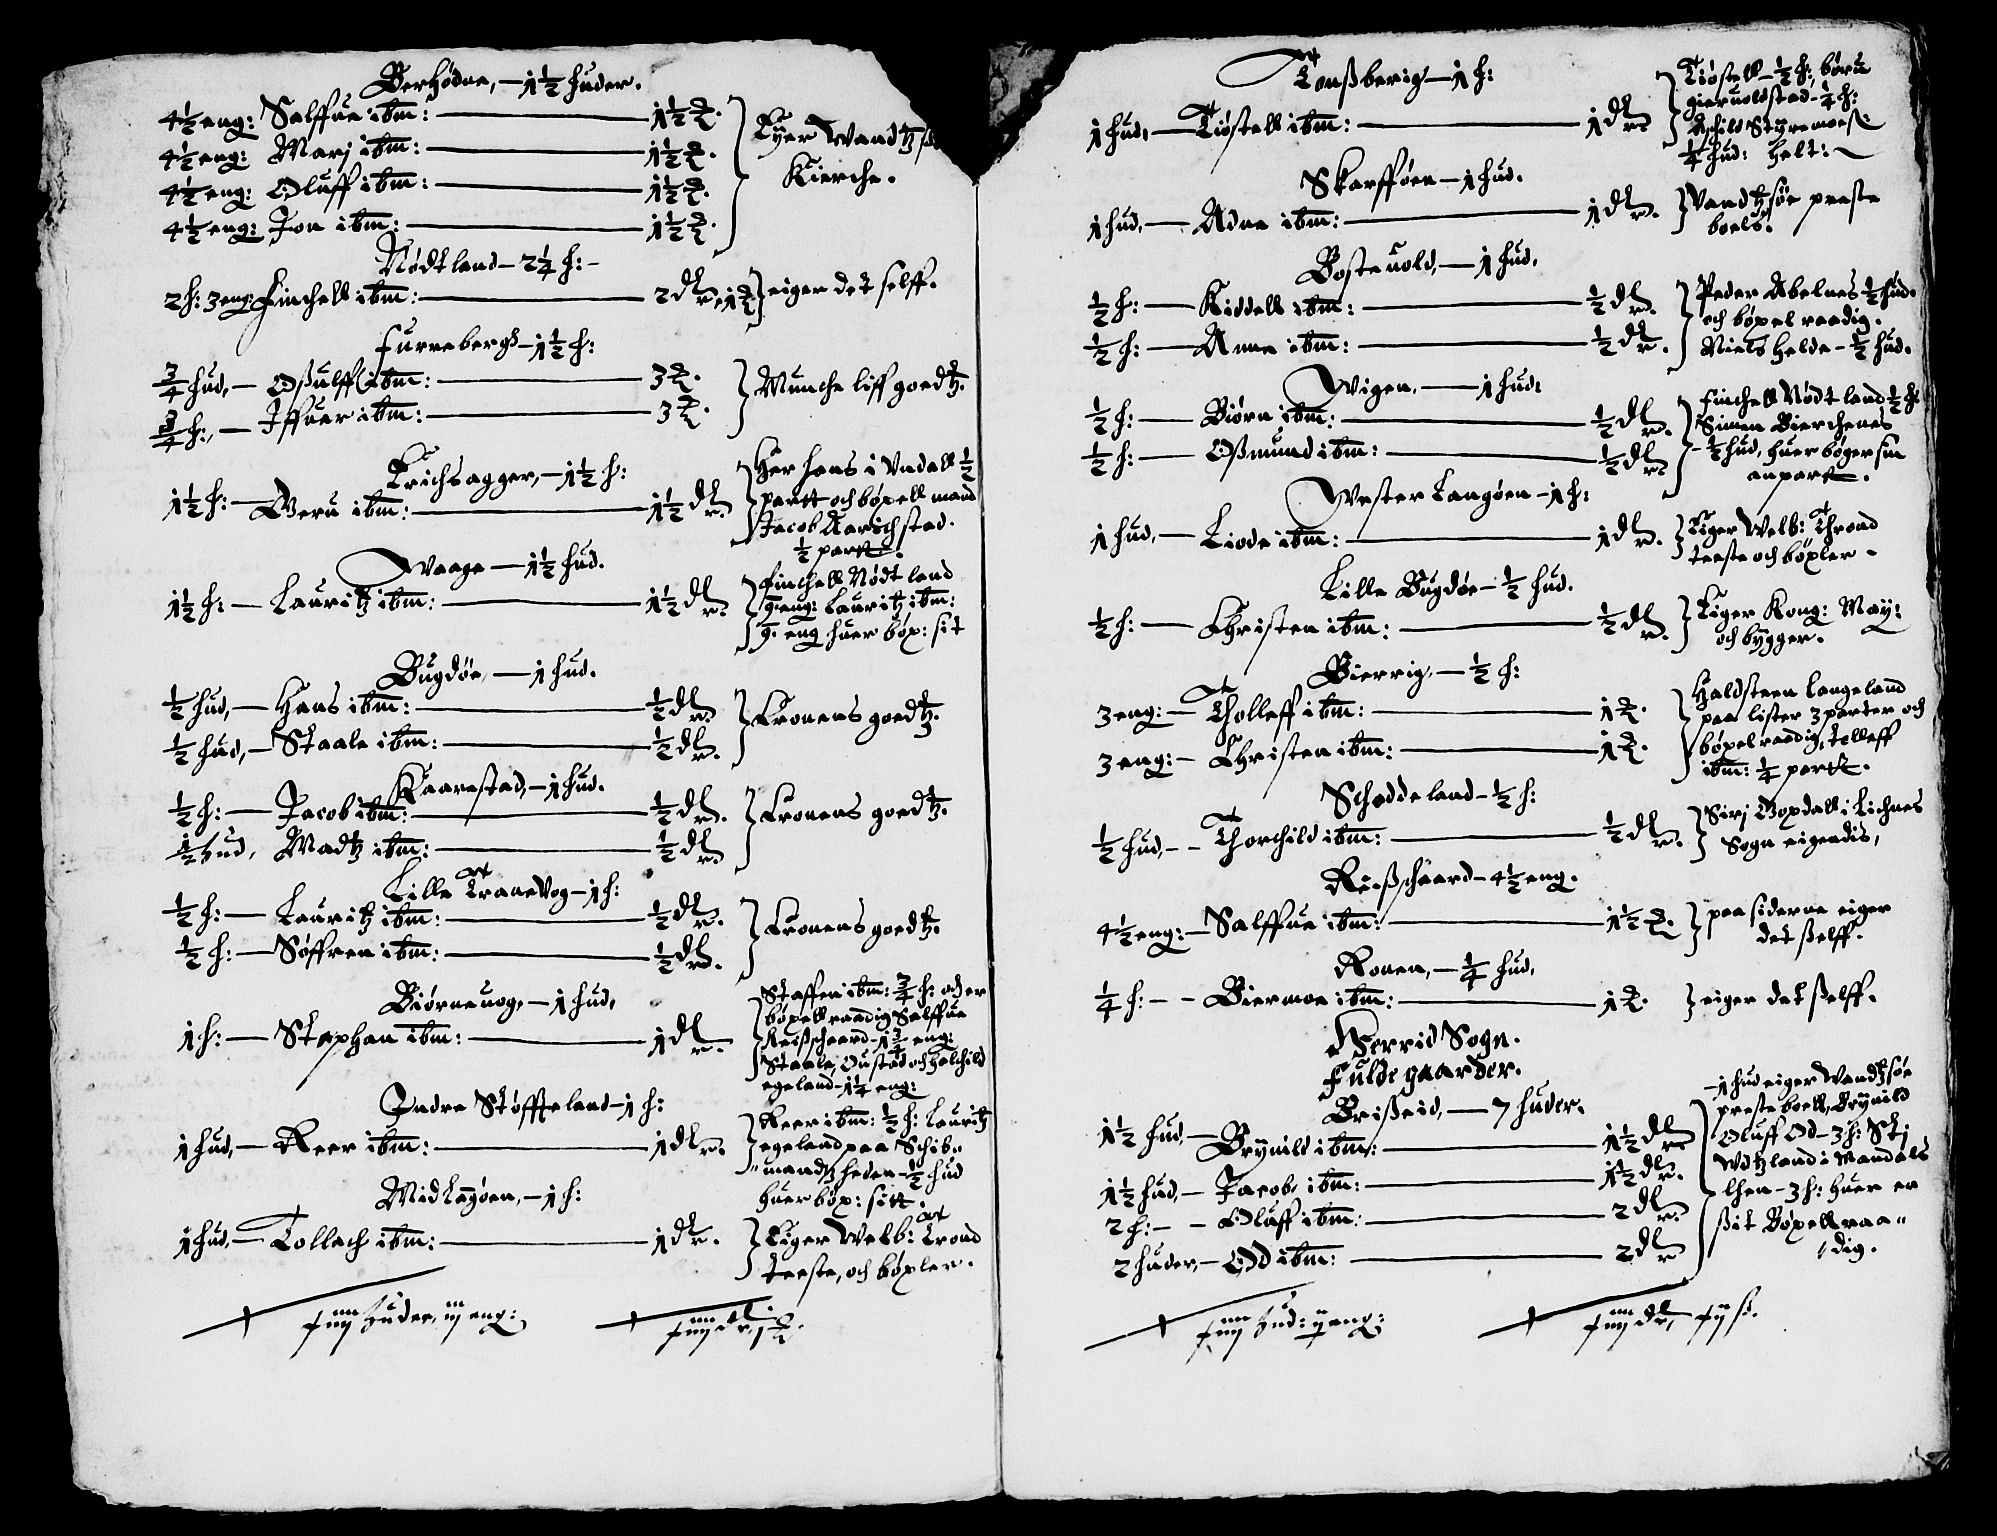 Berhødne, — 1½ huder.
4½ eng: Salffue ibm: — 1½ ₰.
4½ eng: Marj ibm: — 1½ ₰.
4½ eng: Oluff ibm: — 1½ ₰.
4½ eng: Jon ibm: — 1½ ₰.
Eyer Wandtz
Kierche.
Nødtland — 2¼ h: —
2 h: 3 eng: Finchell ibm: — 2 dlr, 1 ₰
eiger det selff.
Furreberg — 1½ h:
¾ hud, — Oßulff ibm: — 3 ₰.
¾ h:, — Iffuer ibm: — 3 ₰.
Munche liff goedtz.
Erichsagger, — 1½ h:
1½ h: — Beru ibm: — 1½ dlr.
Her Hans i Undall ½
partt och bøxell mand
Jacob Aarichstad.
½ partt.
Waage — 1½ hud.
1½ h: — Lauritz ibm: — 1½ dlr.
Finchell Nødtland
9 eng: Lauritz ibm:
9. eng huer bøx: sit
Bugdøe, — 1 hud.
½ hud, — Hans ibm: — ½ dlr.
½ hud, — Staale ibm: — ½ dlr.
Cronens goedtz.
Kaarestad, — 1 hud.
½ h: — Jacob ibm: — ½ dlr.
½ hud, Madtz ibm: — ½ dlr.
Cronens goedtz.
Lille Tranevog — 1 h:
½ h: — Lauritz ibm: — ½ dlr.
½ h: — Søffren ibm: — ½ dlr.
Cronens goedtz.
Biørneuog, — 1 hud,
1 h: — Stephan ibm: — 1 dlr.
Staffen ibm: ¾ h: och er
bøxell raadig Salffue
Reißschaard — 1¾ eng:
Staale, Oustad och Helchild
egeland — 1¼ eng:
Indre Støffteland — 1 h:
1 hud, — Reer ibm: — 1 dlr.
Reer ibm: ½ h: Lauritz
egeland paa Schib„
„mandtz heden — ½ hud
huer bøx: sitt.
Midlagøen, — 1 h:
1 hud, — Tollach ibm: — 1 dlr.
Eiger Welb: Trond
Teeste, och bøxler.
huder, iij eng:
dlr, j ₰.
Tonßberig — 1 h:
1 hud, — Tiøstell ibm: — 1 dlr.
Tiøstell — ½ h: børu
gieruoldstad — ¼ h:
Aschild Styremoeß:
¼ hud: helt: —
Skarfføen — 1 hud.
1 hud, — Adne ibm: — 1 dlr.
Wandtzsøe preste
boels.
Bosteuold, — 1 hud,
½ h: — Kiddell ibm: — ½ dlr.
½ h: — Anne ibm: — ½ dlr.
Peder Abelnes ½ hud.
och bøxel raadig.
Niels Helde — ½ hud.
Wigen, — 1 hud:
½ h: — Biørn ibm: — ½ dlr.
½ h: — Oßmund ibm: — ½ dlr.
Finchell Nødtland ½ h:
Simen Bierchenes
— ½ hud, huer bøger sin
anpartt.
Wester Langøen — 1 h:
1 hud, — Liode ibm: — 1 dlr.
Eiger Welb: Thrond
teeste och bøxler.
Lille Bugdøe — ½ hud.
½ h: — Christen ibm: — ½ dlr.
Eiger Kong: May:
och bygger.
Bierrig, — ½ h:
3 eng: — Tholleff ibm: — 1 ₰.
3 eng: — Christen ibm: — 1 ₰.
Haldsteen Langeland
paa lister 3 parter och
bøxel raadig, Tolleff
ibm: ¼ partt.
Schoddeland — ½ h:
½ hud, — Thorchild ibm: — ½ dlr.
Sirj Opdall i Lichnes
Sogn eigendis,
Reißschaard — 4½ eng.
4½ eng: — Salffue ibm: — 1½ ₰.
paa siderne eiger
det ßelff.
Ronen, — ¼ hud,
¼ h: — Biermoe ibm: — 1 ₰.
eiger det ßelff.
Herrid Sogn.
Fulde gaarder.
Brißeid, — 7 huder.
1½ hud, — Brynild ibm: — 1½ dlr
1½ hud, — Jacob, ibm: — 1½ dlr.
2 h: — Oluff ibm: — 2 dlr.
2 huder, — Od ibm: — 2 dlr
— 1 hud eiger Wandtzsøe
preste boell, Brynild
Oluff Od — 3 h: Skj
Wdtzland i Mandals
lhen — 3 h: huer er
ßit Bøxell raa„
„dig.
hud: ij eng:
dlr, ij ß.